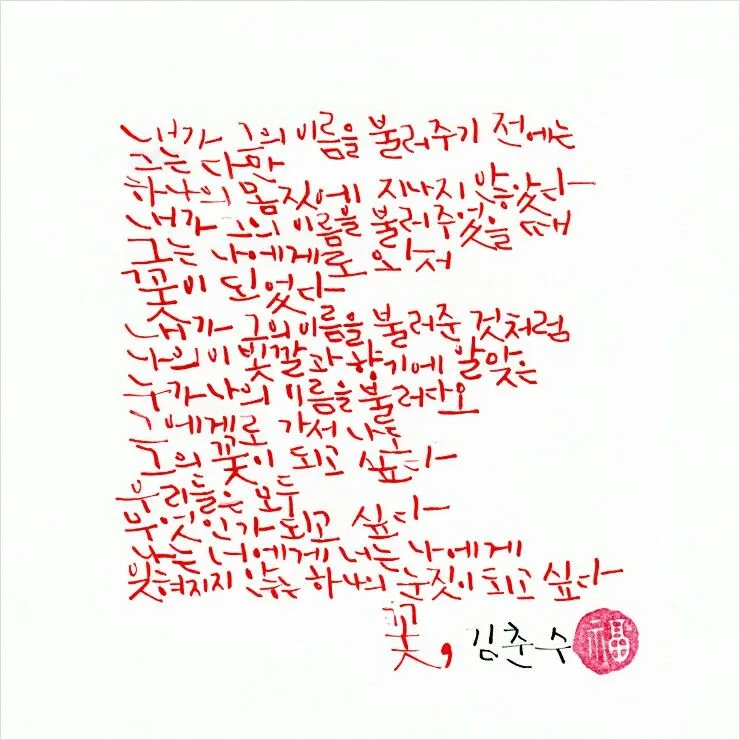 내가 그의 이름을 불러주기 전에는
그는 다만
하나의 몸짓에 지나지 않았다
내가 그의 이름을 불러주었을 때
그는 나에게로 와서
꽃이 되었다
내가 그의 이름을 불러준 것처럼
나의 이 빛깔과 향기에 알맞은
누가 나의 이름을 불러다오
그에게로 가서 나도
그의 꽃이 되고 싶다
우리들은 모두
무엇인가 되고 싶다
나는 너에게 너는 나에게
잊혀지지 않는 하나의 눈짓이 되고 싶다
꽃, 김춘수 福